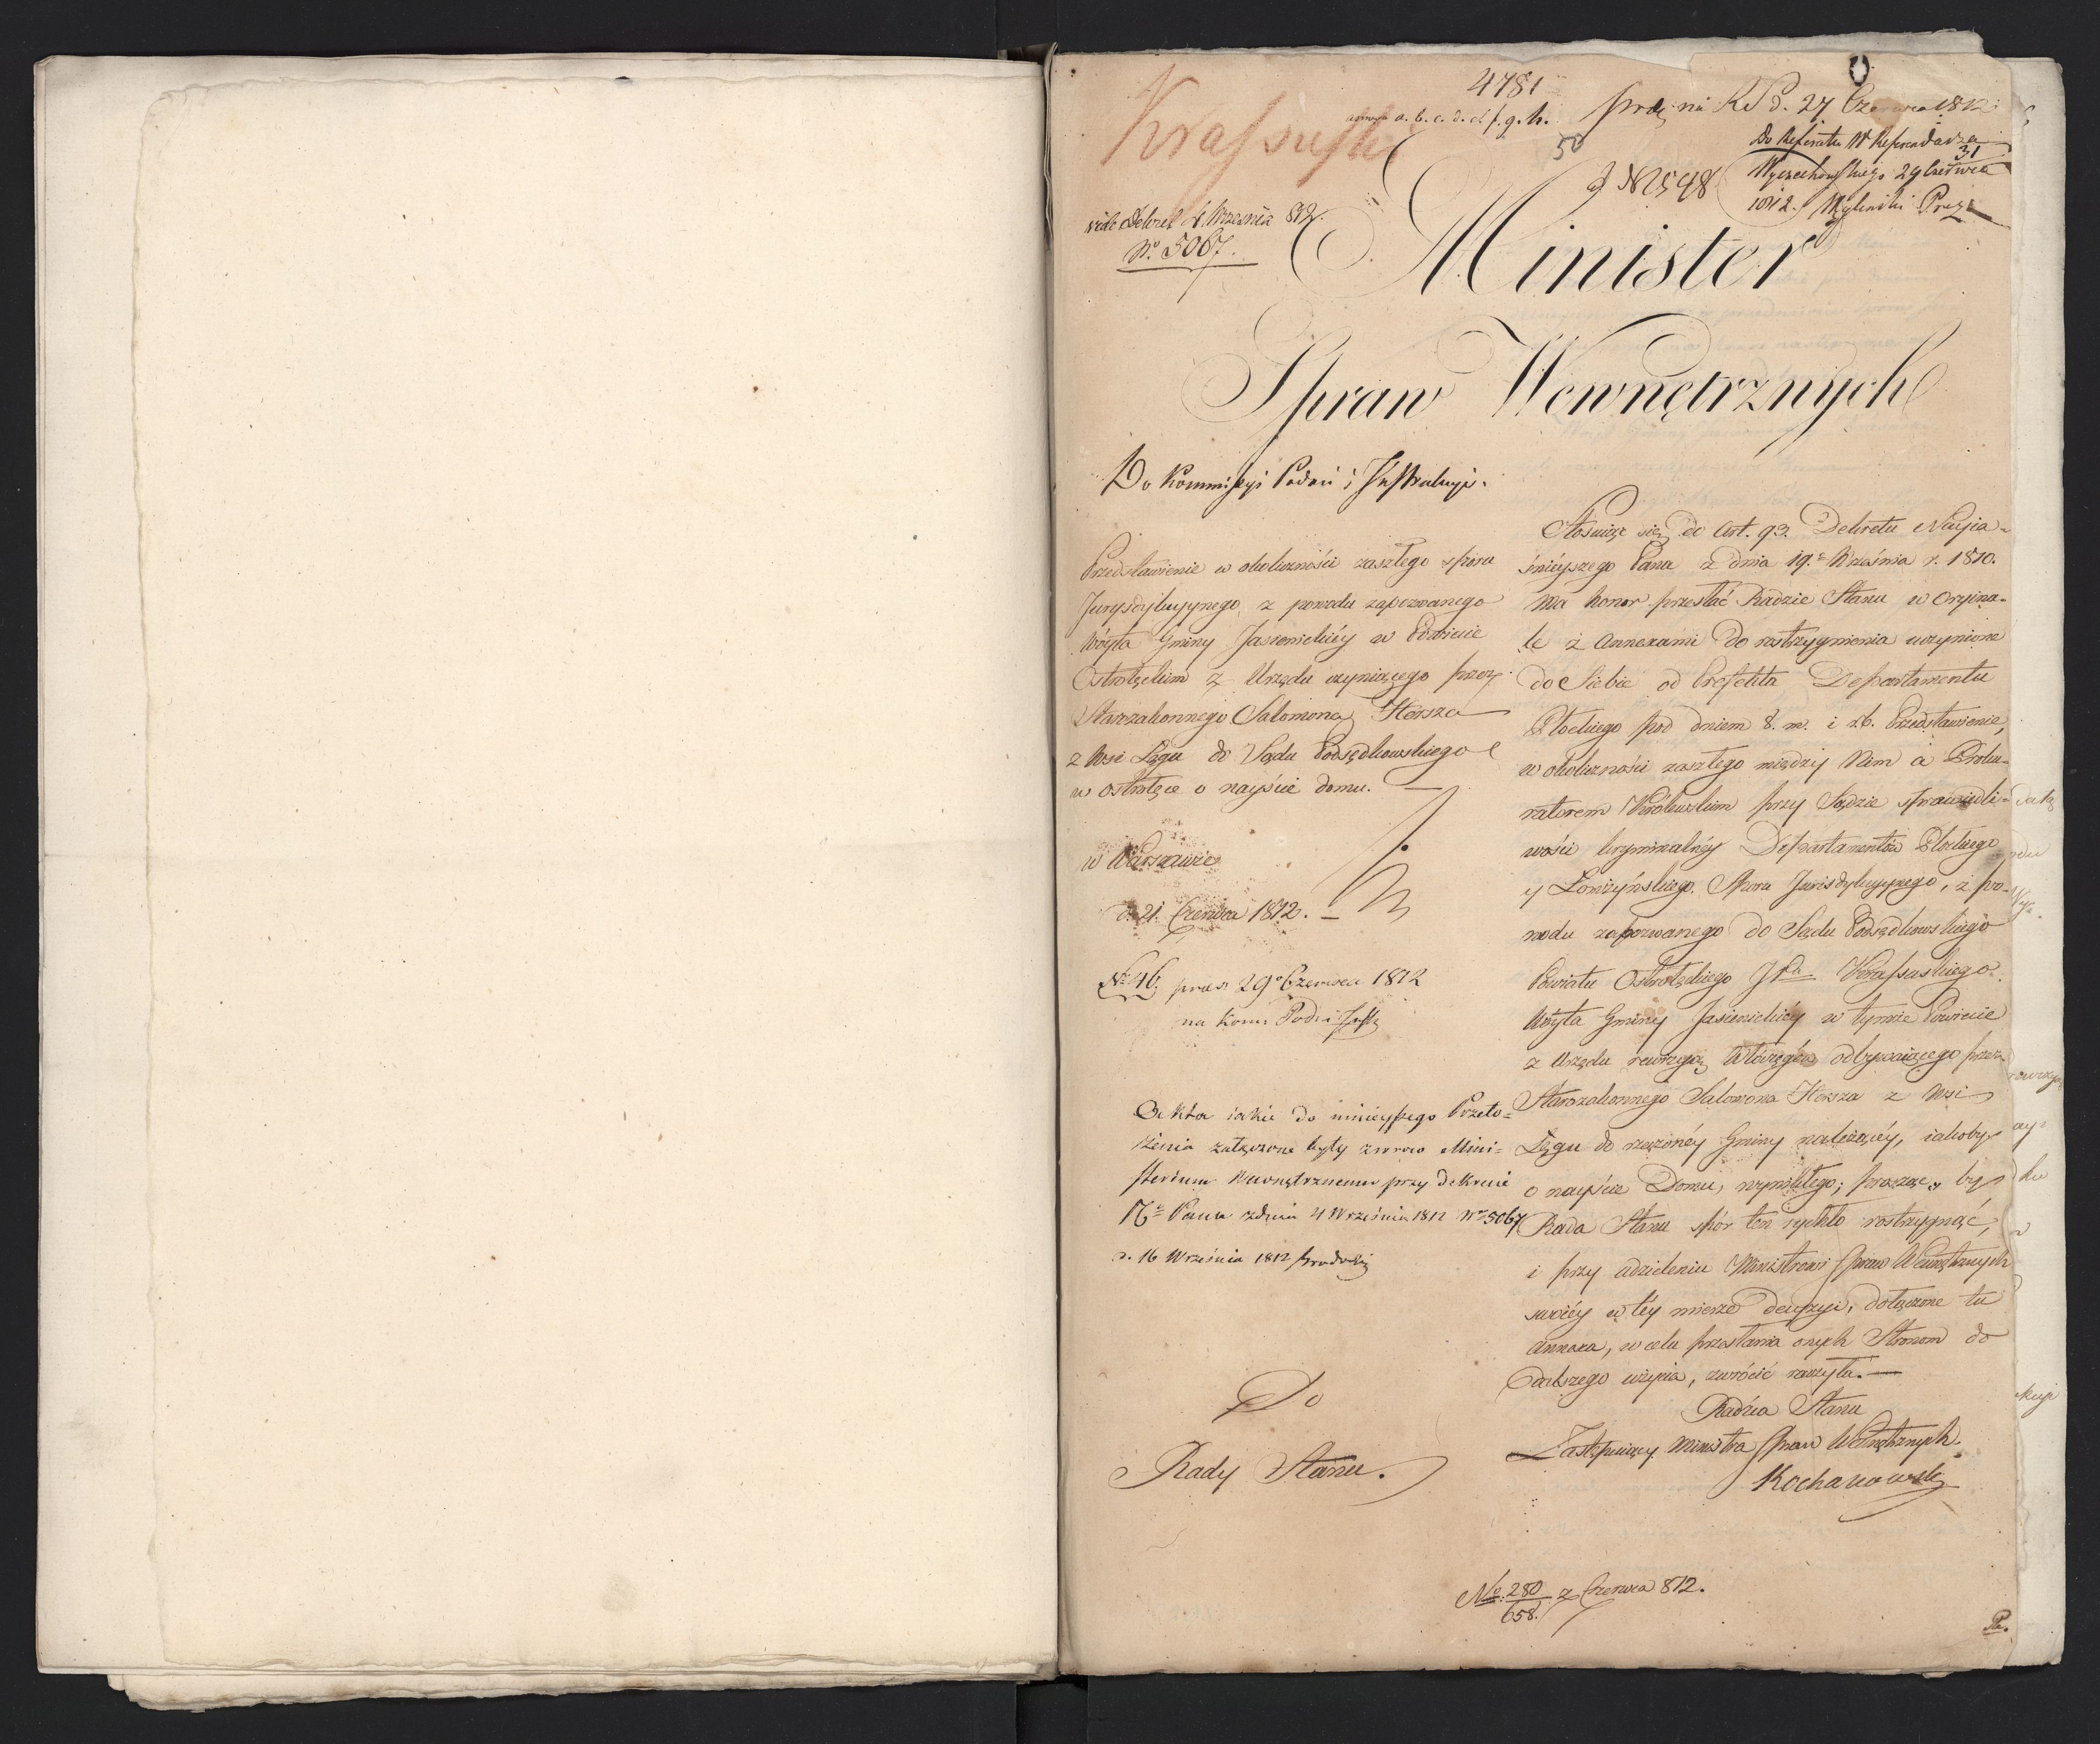 4781
Krassuski
a. b. c. d. e. f. g. h.
50
27 Czerwca 1812
Do Referatu W Referendarza
31
Wyczechowskiego 29 Czerwca
1812. Prezy
J. N 2548
vide Dekret 4 Września 812.
No. 5067.
Minister
Spraw Wewnętrznych
Do Kommissyi Podań i Instrukcyi.
Przedstawienie w okoliczności zaszłego sporu
Jurysdykcyynego, z powodu zapozwanego
Wóyta Gminy Jasienickiéy w Powiecie
Ostrołęckim z Urzędu czyniącego przez
Starzakonnego Salomona Hersza
z Wsi Łęgu do Sądu Podsędkowskiego
w Ostrołęce o nayście domu. —
w Warszawie
d. 21. Czerwca 1812. —
No 46. praes 29o Czerwca 1812
na Kom: Pod: i Instr
Akta iakie do ninieyszego Przeło-
żenia załączone były zwraca Mini-
sterium Wewnętrznemu przy dekrecie
N. Pana z dnia 4 Września 1812 No 5067
d. 16 Września 1812
Do
Rady Stanu.
Stosuiąc się do Art. 93. Dekretu Nayia-
śnieyszego Pana z dnia 19. Września r. 1810.
ma honor przesłać Radzie Stanu w Orygina-
le z Annexami do rostrzygnienia uczynione
do Siebie od Prefekta Departamentu
Płockiego pod dniem 8. m. i r. b. Przedstawienie,
w okoliczności zaszłego między Nim a Proku-
ratorem Królewskim przy Sądzie sprawiedli-
wości kryminalnéy Departamentów Płockiego
y Łomżyńskiego. Sporu Jurisdykcyynego, z po-
wodu zapozwanego do Sądu Podsędkowskiego
Powiatu Ostrołęckiego JPa Krassuskiego
Wóyta Gminy Jasienickiéy w tymże Powiecie
z Urzędu rewizyą Włóczęgów odbywaiącego przez
Starozakonnego Salomona Hersza z Wsi
Łęgu do rzeczonéy Gminy należącéy, iakoby
o nayście Domu, wynikłego; prosząc, by
Rada Stanu spór ten rychło rostrzygnąć,
i przy udzieleniu Ministrowi Spraw Wewnętrznych
swoiéy w téy mierze decyzyi, dołączone tu
annexa, w celu przesłania onych Stronom do
dalszego użycia, zwrócić raczyła. —
Radzca Stanu
Zastępuiący Ministra Spraw Wewnętrznych.
Kochanowski
No. 280/658. z Czerwca 812.